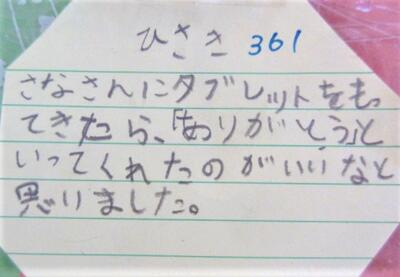 ひさき 361
さなさんにタブレットをもっ
てきたら、「ありがとう」と
いってくれたのがいいなと
思いました。